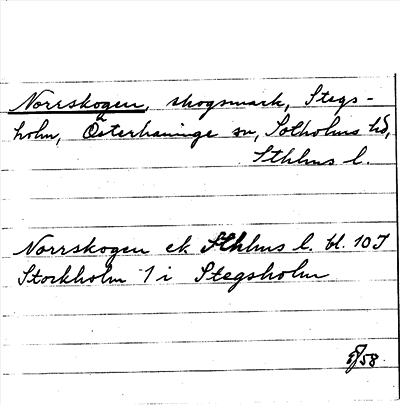 Norrskogen, skogsmark, Stegs-
holm, Österhaninge sn, Sotholms hd,
Sthlms l.
Norrskogen ek Sthlms l. bl. 10 J
Stockholm 1 i Stegsholm
58